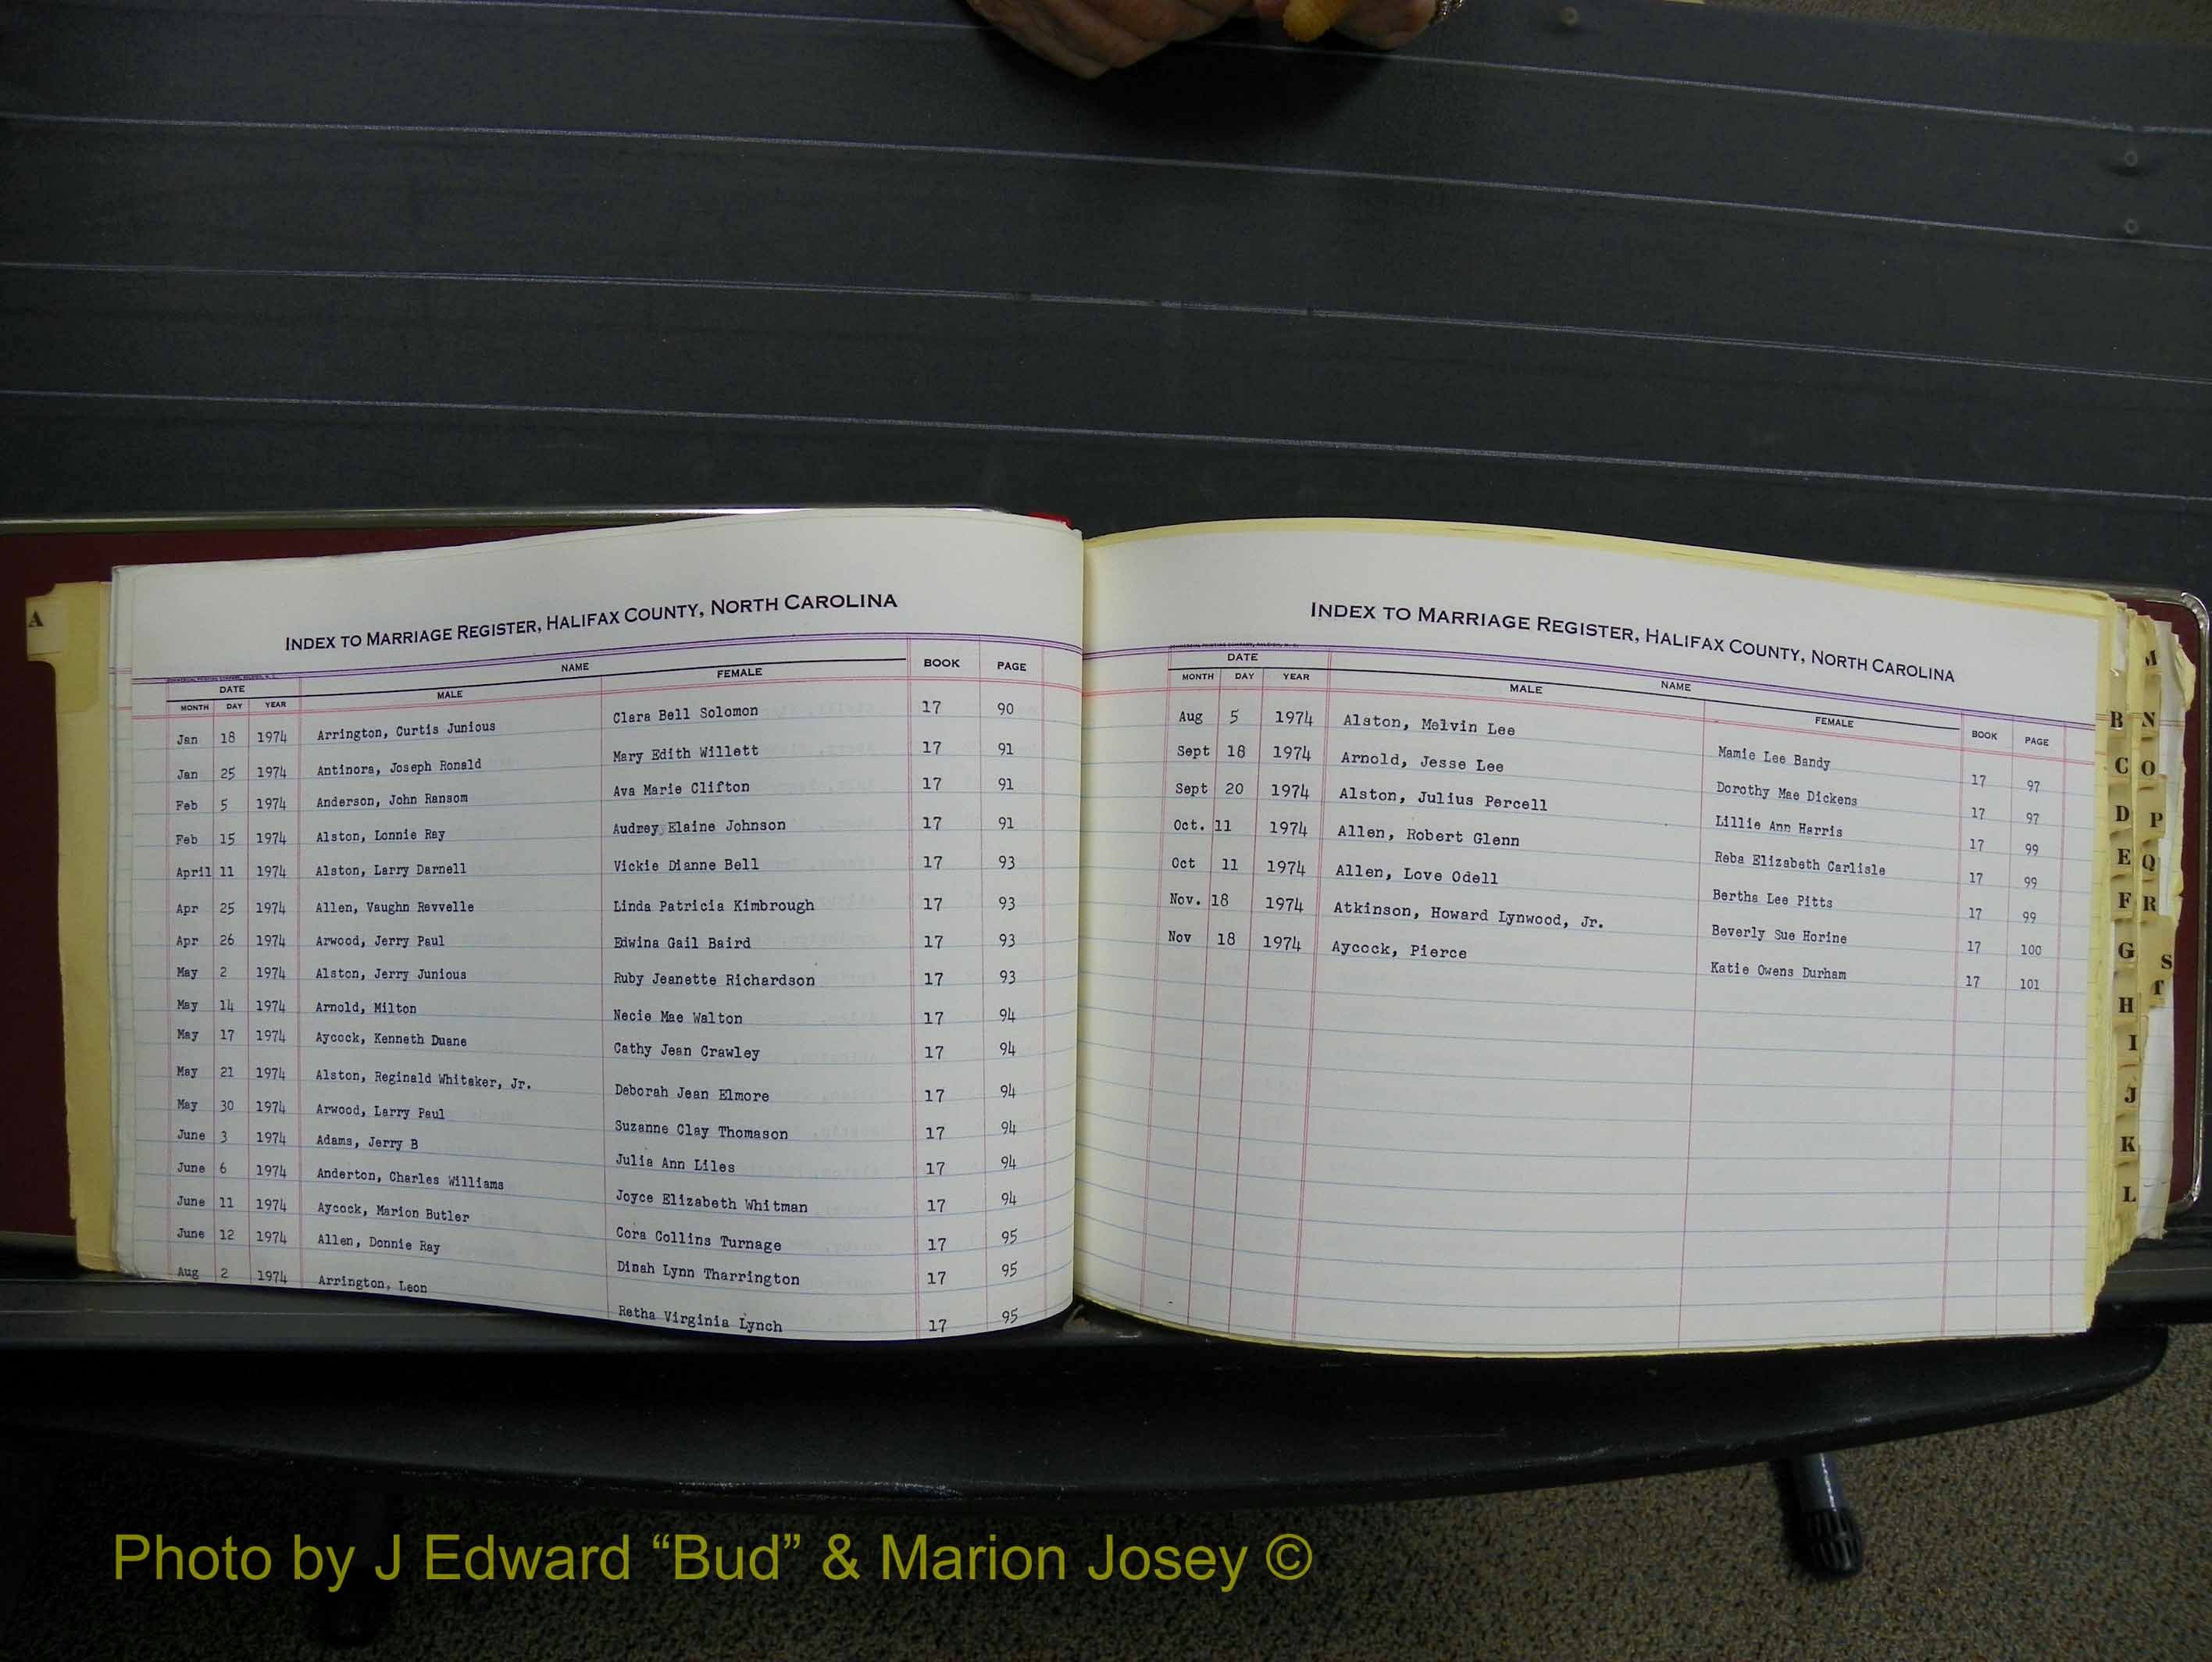 A
INDEX TO MARRIAGE REGISTER, HALIFAX COUNTY, NORTH CAROLINA
DATE NAME BOOK PAGE
MONTH DAY YEAR MALE FEMALE
Jan 18 1974 Arrington, Curtis Junious Clara Bell Solomon 17 90
Jan 25 1974 Antinora, Joseph Ronald Mary Edith Willett 17 91
Feb 5 1974 Anderson, John Ransom Ava Marie Clifton 17 91
Feb 15 1974 Alston, Lonnie Ray Audrey Elaine Johnson 17 91
April 11 1974 Alston, Larry Darnell Vickie Dianne Bell 17 93
Apr 25 1974 Allen, Vaughn Revvelle Linda Patricia Kimbrough 17 93
Apr 26 1974 Arwood, Jerry Paul Edwina Gail Baird 17 93
May 2 1974 Alston, Jerry Junious Ruby Jeanette Richardson 17 93
May 14 1974 Arnold, Milton Necie Mae Walton 17 94
May 17 1974 Aycock, Kenneth Duane Cathy Jean Crawley 17 94
May 21 1974 Alston, Reginald Whitaker, Jr. Deborah Jean Elmore 17 94
May 30 1974 Arwood, Larry Paul Suzanne Clay Thomason 17 94
June 3 1974 Adams, Jerry B Julia Ann Liles 17 94
June 6 1974 Anderton, Charles Williams Joyce Elizabeth Whitman 17 94
June 11 1974 Aycock, Marion Butler Cora Collins Turnage 17 95
June 12 1974 Allen, Donnie Ray Dinah Lynn Tharrington 17 95
Aug 2 1974 Arrington, Leon Retha Virginia Lynch 17 95
INDEX TO MARRIAGE REGISTER, HALIFAX COUNTY, NORTH CAROLINA
DATE NAME
MONTH DAY YEAR MALE FEMALE BOOK PAGE
Aug 5 1974 Alston, Melvin Lee Mamie Lee Bandy 17 97
Sept 18 1974 Arnold, Jesse Lee Dorothy Mae Dickens 17 97
Sept 20 1974 Alston, Julius Percell Lillie Ann Harris 17 99
Oct. 11 1974 Allen, Robert Glenn Reba Elizabeth Carlisle 17 99
Oct 11 1974 Allen, Love Odell Bertha Lee Pitts 17 99
Nov. 18 1974 Atkinson, Howard Lynwood, Jr. Beverly Sue Horine 17 100
Nov 18 1974 Aycock, Pierce Katie Owens Durham 17 101
M
B N
C O
D P
E Q
F R
G S
H T
I
J
K
L
Photo by J Edward “Bud” & Marion Josey ©